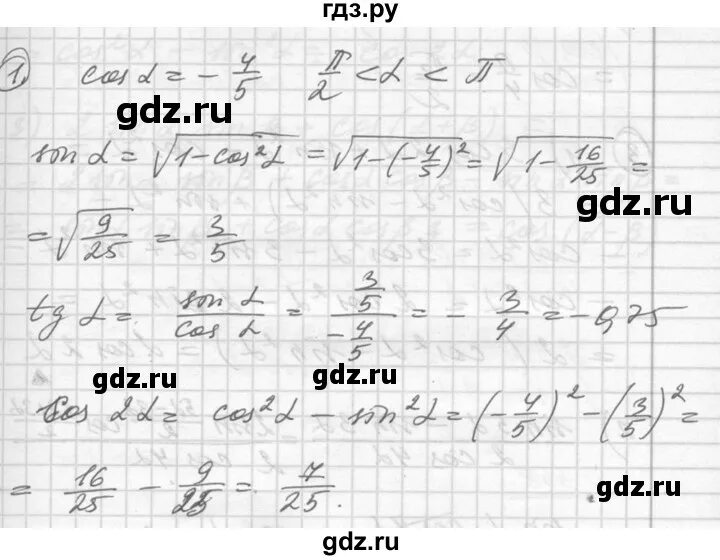 гдз.ру
1. cos α = - 4/5   π/2 < α < π
gdz.ru
sin α = √(1 - cos²α) = √(1 - (-4/5)²) = √(1 - 16/25) =
gdz.ru
= √(9/25) = 3/5
tg α = sin α / cos α = (3/5)/(-4/5) = - 3/4 = - 0,75
gdz.ru
gdz.ru
cos 2α = cos²α - sin²α = (-4/5)² - (3/5)² =
= 16/25 - 9/25 = 7/25.
gdz.ru